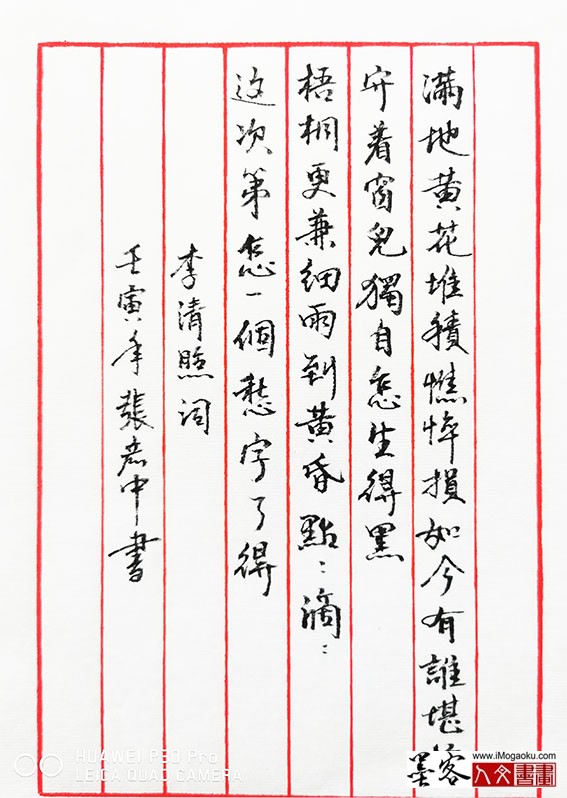 滿地黄花堆積憔悴損如今有誰堪
守着窗兒獨自怎生得黑
梧桐更兼細雨到黄昏點:滴:
这次第怎一個愁字了得
李清照词
壬寅年張彦中書
HUAWEI P30 Pro
LEICA QUAD CAMERA
www.iMogaoku.com
墨客
人文書畫